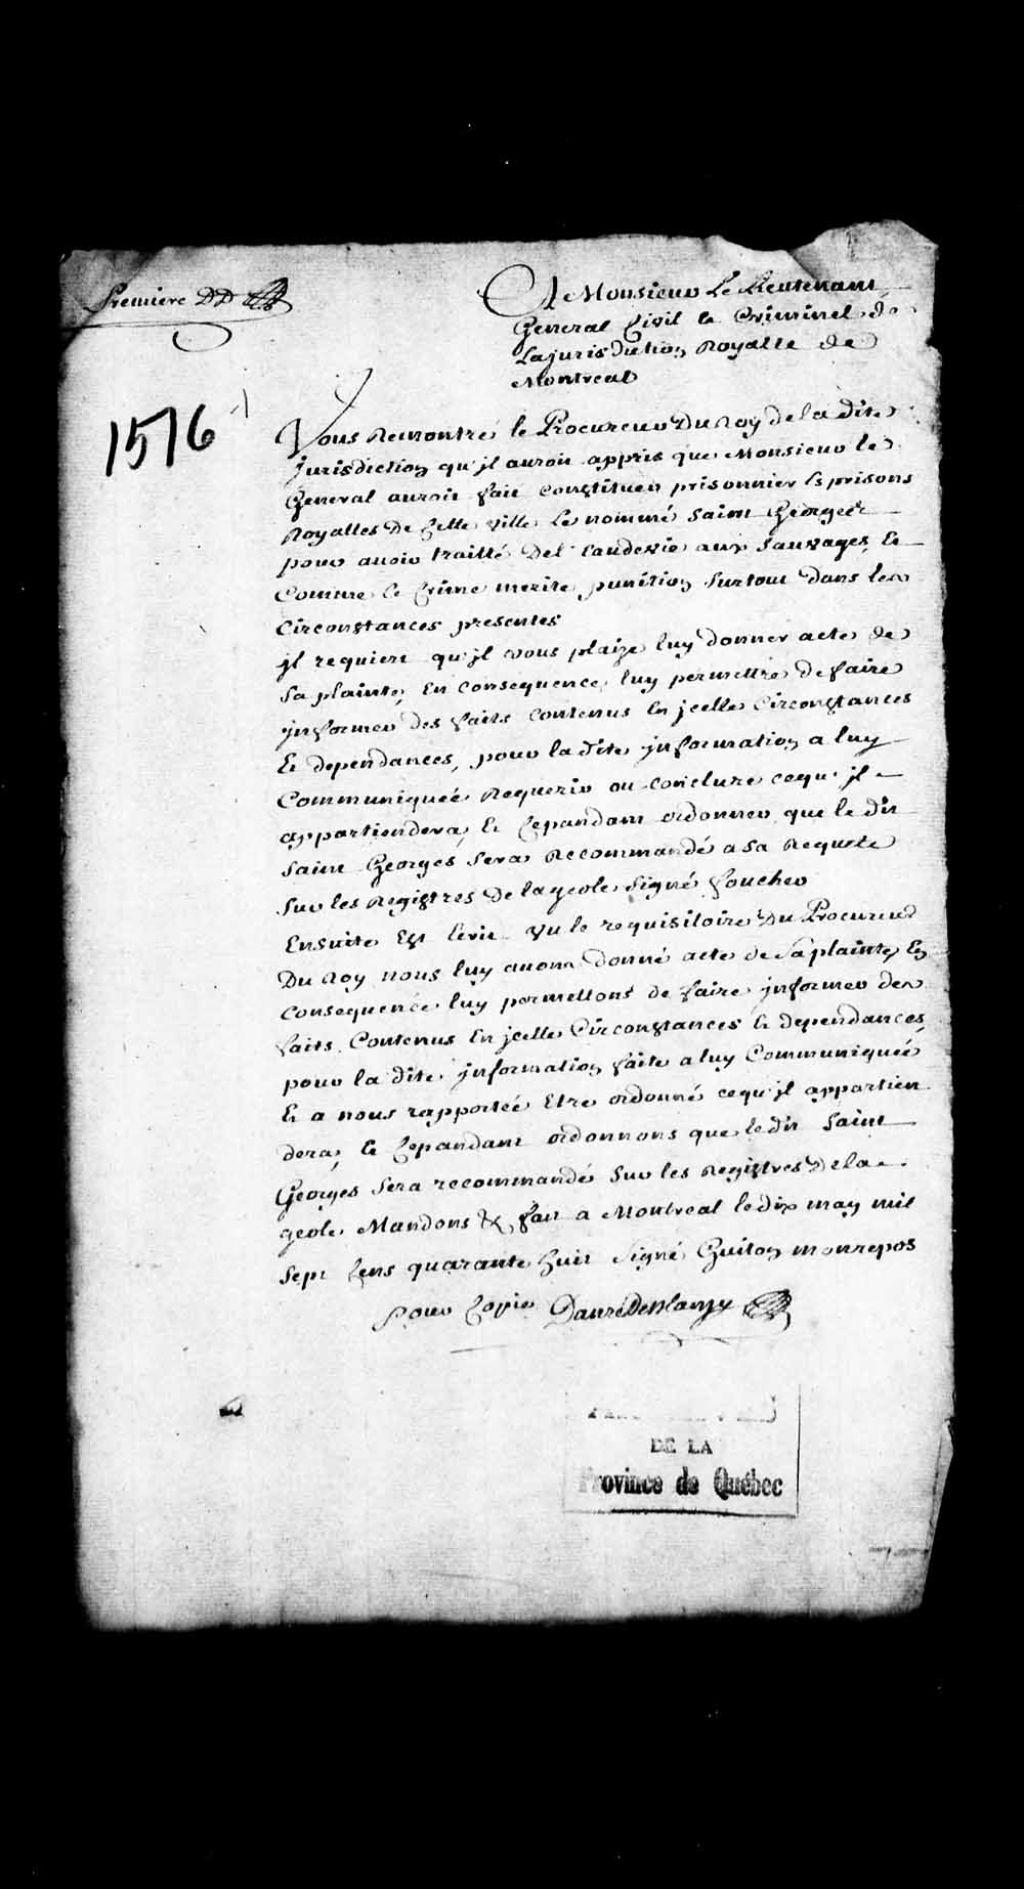 Premiere DD
A Monsieur Le Lieutenant
General Civil & Criminel de
La jurisdiction Royalle de
Montreal
1516
Vous Remontre le Procureur Du Roy de la dite
jurisdiction qu'jl auroit appris que Monsieur le
General auroit fait constituer prisonnier Es prisons
Royalles De Cette ville Le nommé Saint Georges
pour avoir traitté De l'eaudevie aux Sauvages, &
Comme Ce Crime merite punition Surtout dans les
Circonstances presentes
jl requiert qu'jl vous plaize luy donner acte de
Sa plainte, En Consequence, luy permettre de faire
jnformer des faits Contenus En jcelle Circonstances
& dependances, pour la dite jnformation a luy
Communiquée Requerir ou conclure cequ'jl
appartiendera, & Cepandant ordonner que le dit
Saint Georges Sera Recommandé a Sa Requete
Sur les Registres De la geole Signé foucher
Ensuite Est Ecrit Vu le requisitoire Du Procureur
Du Roy nous luy avons donné acte de Sa plainte, En
Consequence luy permettons de faire jnformer des
faits Contenus En jcelle Circonstances & dependances,
pour la dite jnformation faite a luy Communiquée
& a nous rapportée Etre ordonné cequ'jl appartien
dera, & Cepandant ordonnons que le dit Saint
Georges Sera recommandé Sur les Registres De la
geole Mandons &c, fait a Montreal le dix may mil
Sept Cens quarante huit Signé Guiton monrepos
pour Copie Danré De Blanzy
DE LA
Province de Québec